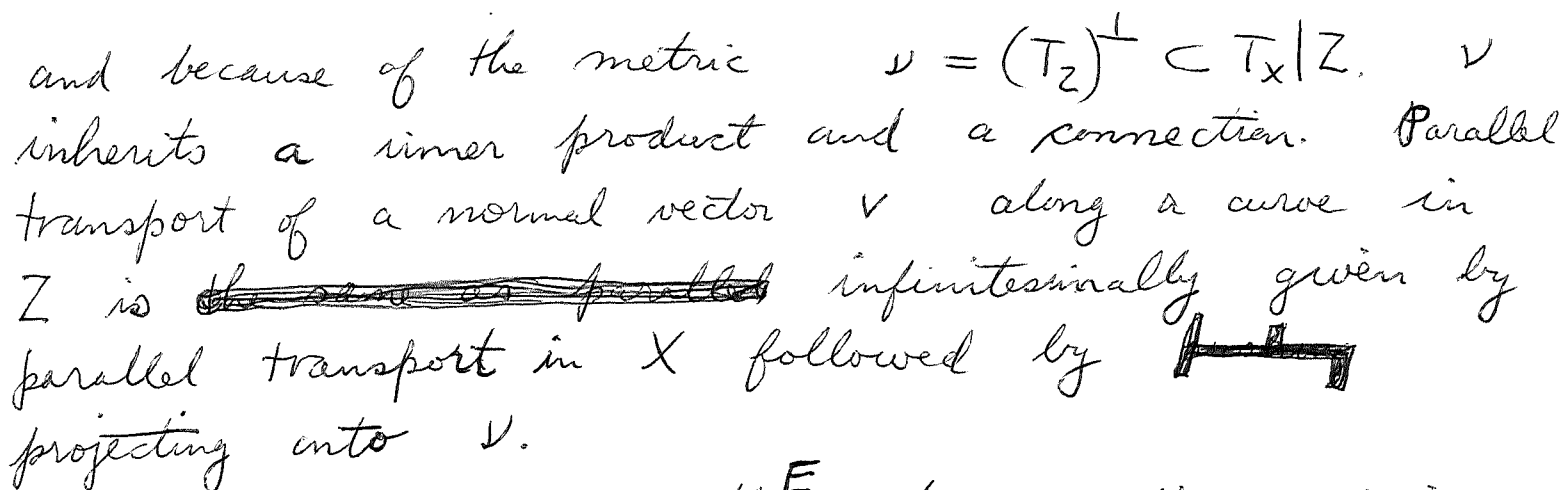 and because of the metric ν = (T_Z)^⊥ ⊂ T_X|Z. ν
inherits a inner product and a connection. Parallel
transport of a normal vector v along a curve in
Z is infinitesimally given by
parallel transport in X followed by
projecting onto ν.